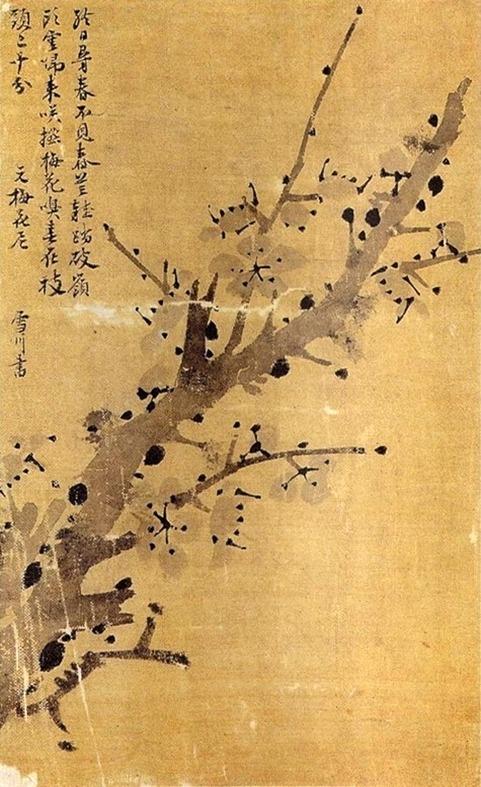 終日尋春不見春芒鞋踏破嶺
頭雲歸來咲撚梅花嗅春在枝
頭已十分 元梅花尼 雪川書